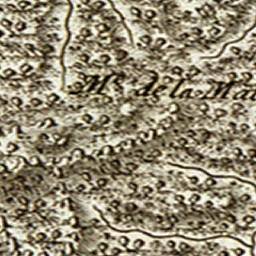 Mt. de la Ma